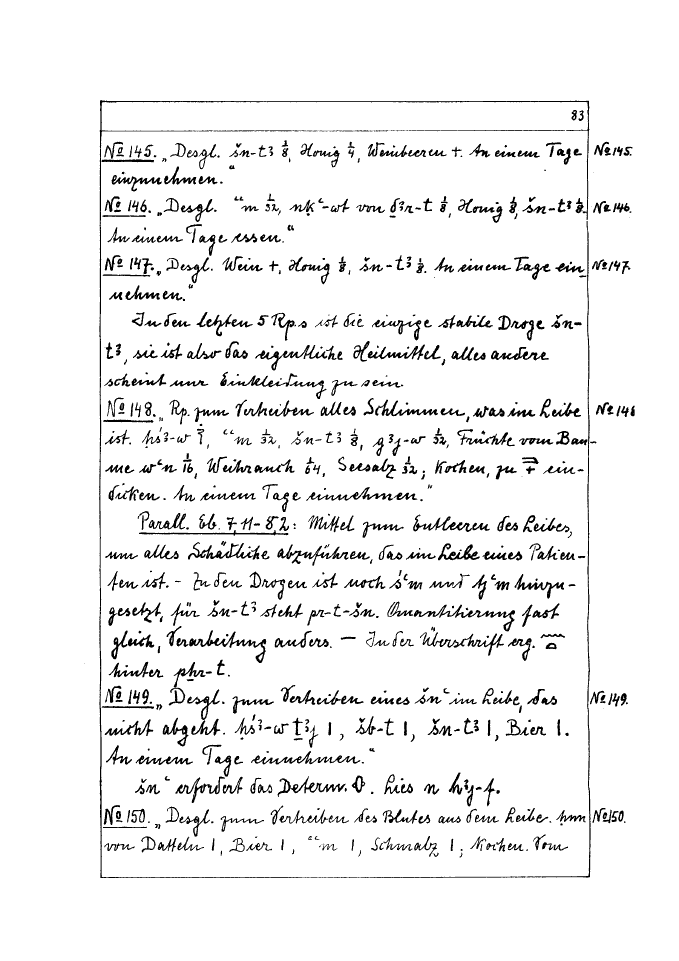 83
No 145. „Desgl. šn-t3 1/8, Honig 1/4, Weinbeeren +. An einem Tage No 145.
einzunehmen.“
No 146. „Desgl. ꜥꜥm 1/32, nḳꜥ-wt von d3r-t 1/8, Honig 1/8, šn-t3 1/8. No 146.
An einem Tage essen.“
No 147. „Desgl. Wein +, Honig 1/8, šn-t3 1/8. An einem Tage ein- No 147.
nehmen.“
In den letzten 5 Rp.s ist die einzige stabile Droge šn-
t3, sie ist also das eigentliche Heilmittel, alles andere
scheint nur Einkleidung zu sein.
No 148. „Rp. zum Vertreiben alles Schlimmen, was im Leibe No 148
ist. ḥś3-w, ꜥꜥm 1/32, šn-t3 1/8, g3j-w 1/32, Früchte vom Bau-
me wꜥn 1/16, Weihrauch 1/64, Seesalz 1/32; Kochen, zu ein-
dicken. An einem Tage einnehmen.“
Parall. Eb. 7,11-8,2: Mittel zum Entleeren des Leibes,
um alles Schädliche abzuführen, das im Leibe eines Patien-
ten ist. - Zu den Drogen ist noch śꜥm und ṯꜥm hinzu-
gesetzt, für šn-t3 steht pr-t-šn. Quantitierung fast
gleich, Verarbeitung anders. — In der Überschrift erg.
hinter pẖr-t.
No 149. „Desgl. zum Vertreiben eines šnꜥ im Leibe, das No 149.
nicht abgeht. ḥś3-w ṯ3j 1, šb-t 1, šn-t3 1, Bier 1.
An einem Tage einnehmen.“
šnꜥ erfordert das Determ. Lies n h3j-f.
No 150. „Desgl. zum Vertreiben des Blutes aus dem Leibe. ḥmw No 150.
von Datteln 1, Bier 1, ꜥꜥm 1, Schmalz 1; Kochen. Vom